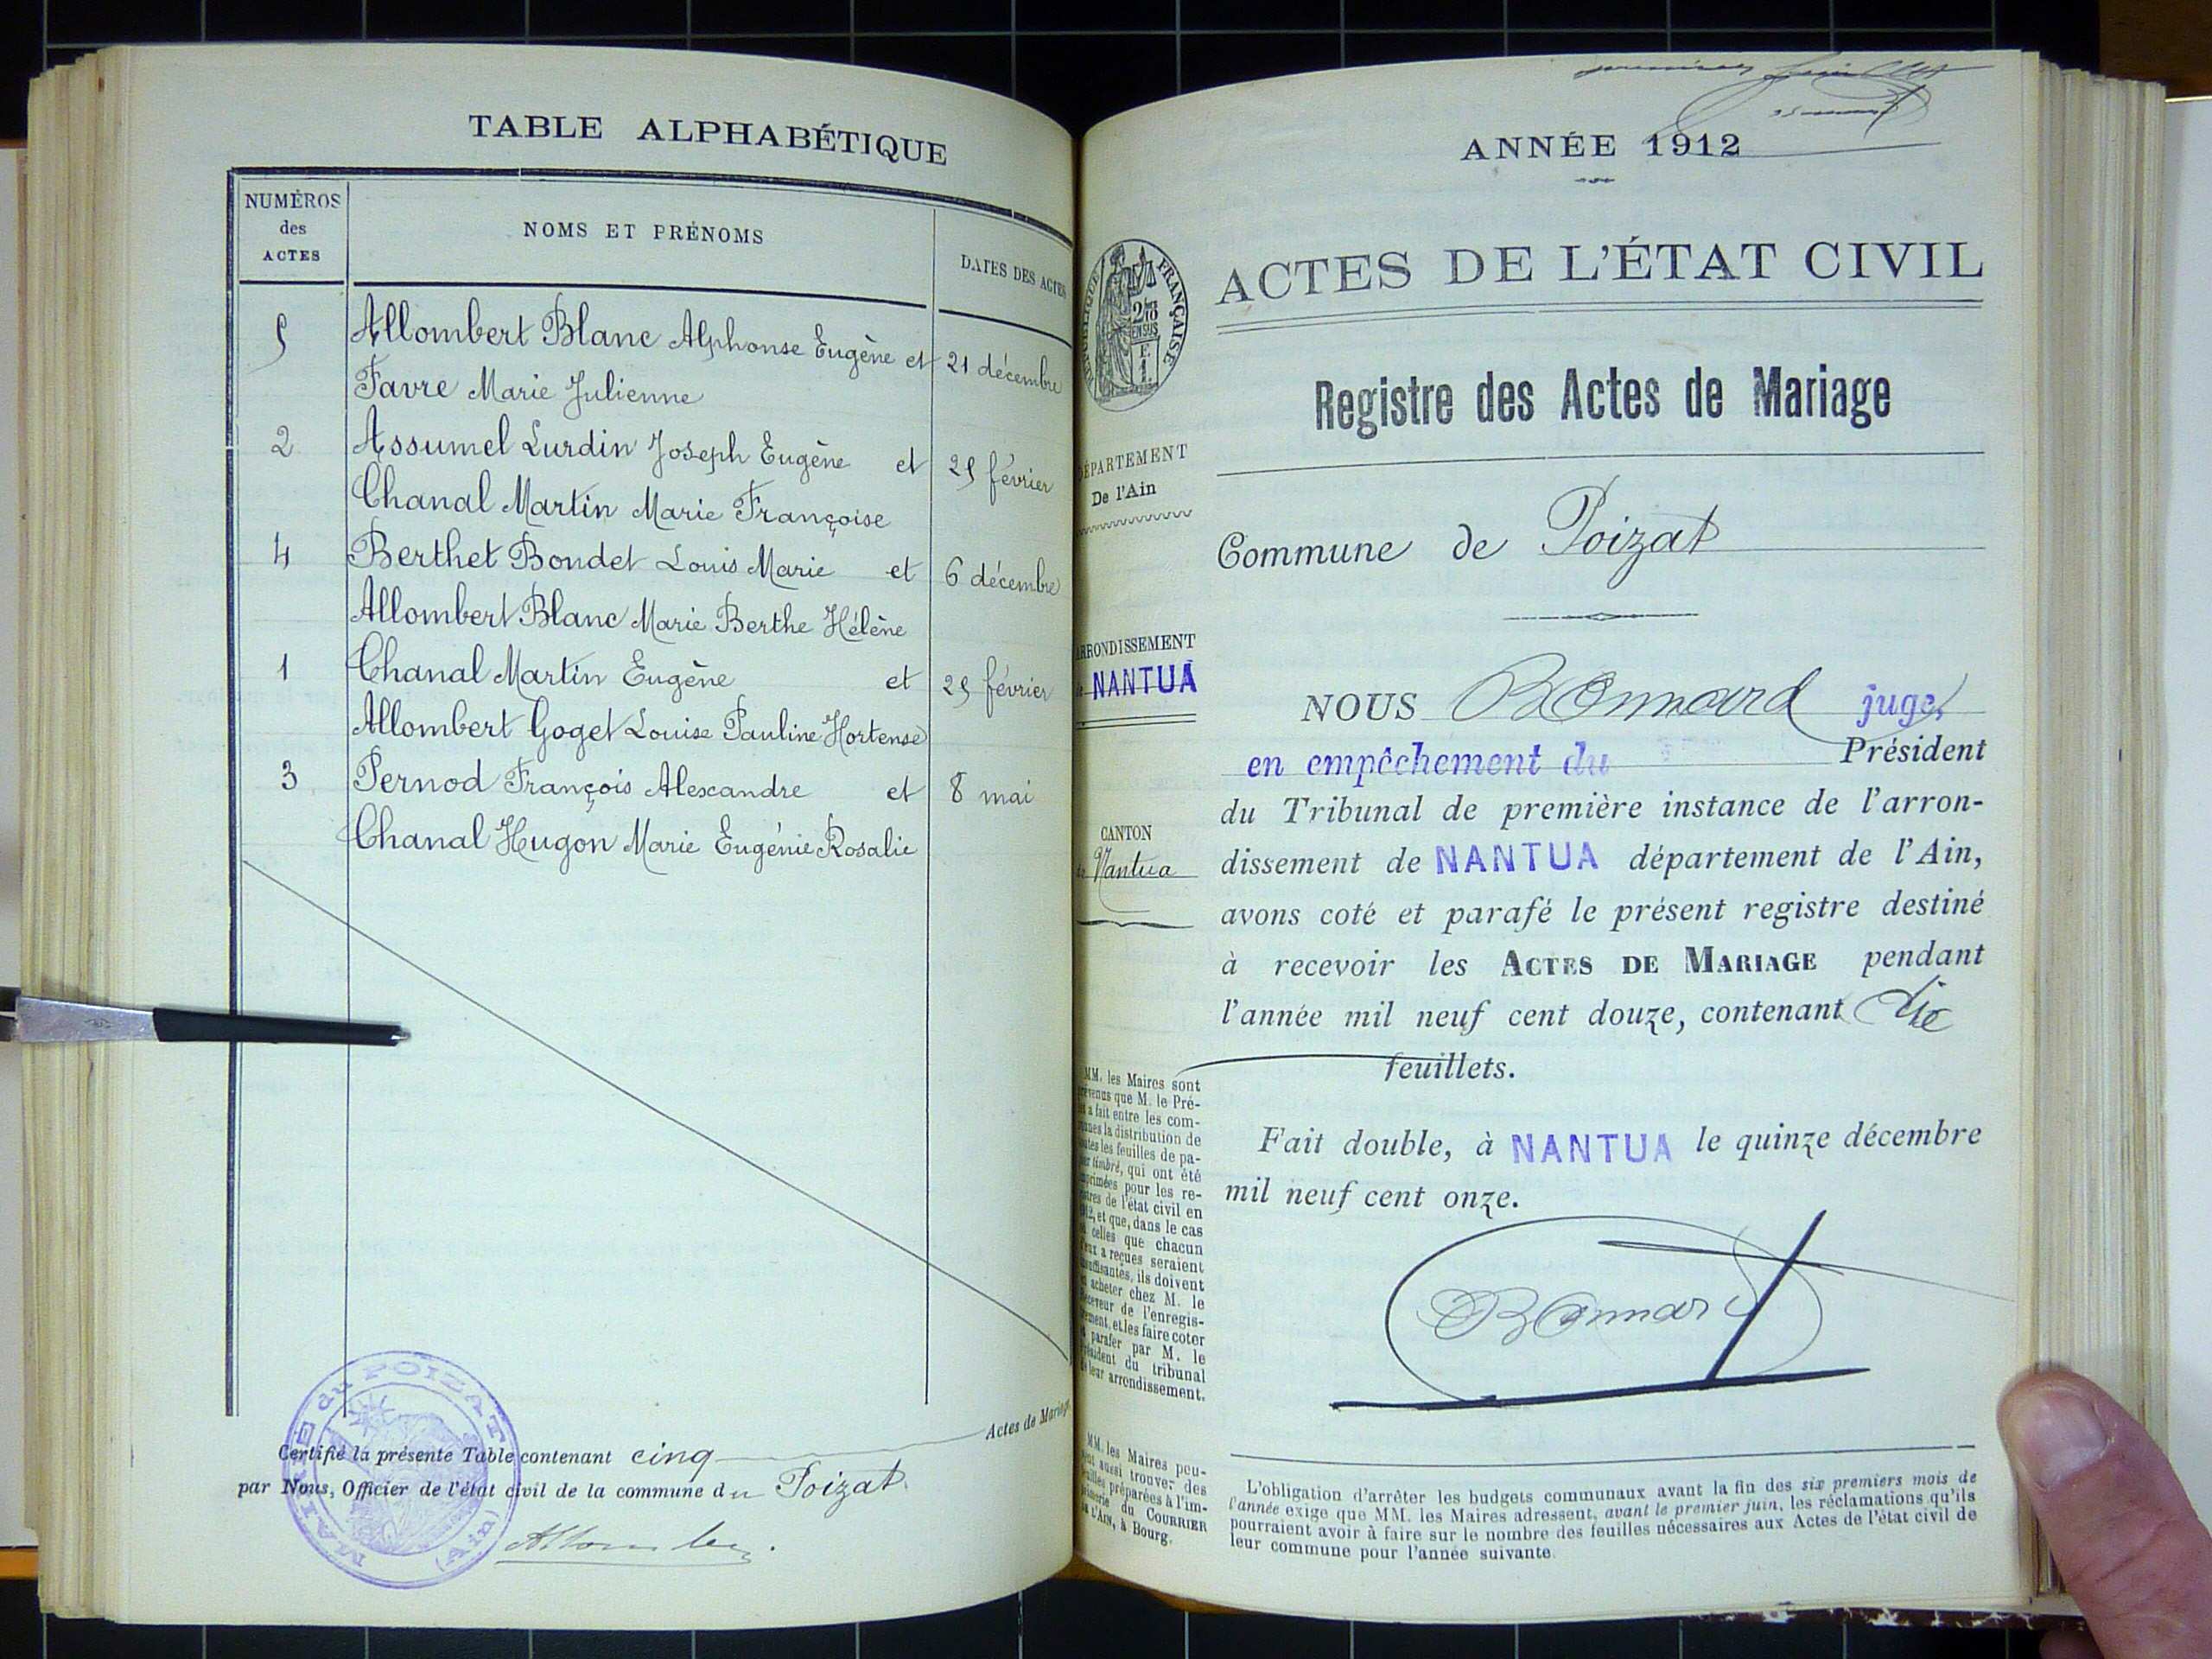 TABLE ALPHABÉTIQUE
NUMÉROS
des
ACTES
NOMS ET PRÉNOMS
DATES DES ACTES
5 Allombert Blanc Alphonse Eugène et 21 décembre
Favre Marie Julienne
2 Assumel Lurdin Joseph Eugène et 25 février
Chanal Martin Marie Françoise
4 Berthet Bondet Louis Marie et 6 décembre
Allombert Blanc Marie Berthe Hélène
1 Chanal Martin Eugène et 25 février
Allombert Goget Louise Pauline Hortense
3 Pernod François Alexandre et 8 mai
Chanal Hugon Marie Eugénie Rosalie
Certifié la présente Table contenant cinq Actes de Mariage
par Nous, Officier de l'état civil de la commune du Poizat.
MAIRIE du POIZAT
(Ain)
ANNÉE 1912
RÉPUBLIQUE FRANÇAISE
ACTES DE L'ÉTAT CIVIL
Registre des Actes de Mariage
DÉPARTEMENT
De l'Ain
Commune de Poizat
ARRONDISSEMENT
de NANTUA
CANTON
de Nantua
NOUS Bonnard juge,
en empêchement du Président
du Tribunal de première instance de l'arron-
dissement de NANTUA département de l'Ain,
avons coté et parafé le présent registre destiné
à recevoir les ACTES DE MARIAGE pendant
l'année mil neuf cent douze, contenant dix
feuillets.
Fait double, à NANTUA le quinze décembre
mil neuf cent onze.
Bonnard
MM. les Maires sont
prévenus que M. le Pré-
fet a fait entre les com-
munes la distribution de
toutes les feuilles de pa-
pier timbré, qui ont été
imprimées pour les re-
gistres de l'état civil en
1912, et que, dans le cas
où celles que chacun
d'eux a reçues seraient
insuffisantes, ils doivent
en acheter chez M. le
Receveur de l'enregis-
trement, et les faire coter
et parafer par M. le
Président du tribunal
de leur arrondissement.
MM. les Maires peu-
vent aussi trouver des
feuilles préparées à l'im-
primerie du COURRIER
DE L'AIN, à Bourg.
L'obligation d'arrêter les budgets communaux avant la fin des six premiers mois de
l'année exige que MM. les Maires adressent, avant le premier juin, les réclamations qu'ils
pourraient avoir à faire sur le nombre des feuilles nécessaires aux Actes de l'état civil de
leur commune pour l'année suivante.